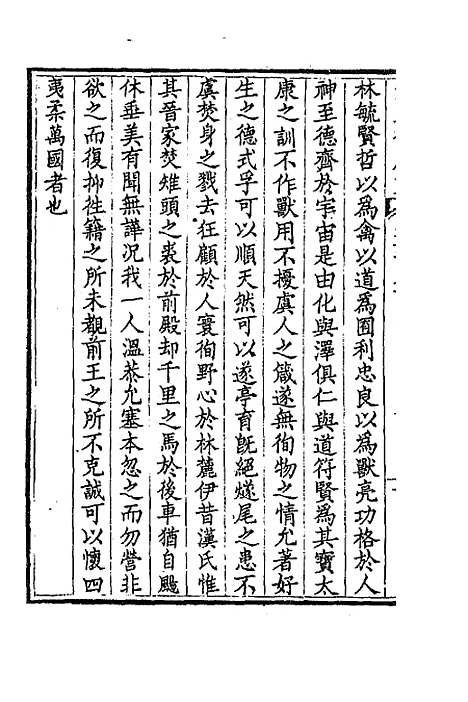 林毓賢哲以為禽以道為囿利忠良以為獸亮功格於人
神至德齊於宇宙是由化與澤俱仁與道符賢為其寶太
康之訓不作獸用不擾虞人之箴遂無徇物之情允著好
生之德式孚可以順天然可以遂亭育旣絕燧尾之患不
虞焚身之戮去狂顧於人寰徇野心於林麓伊昔漢氏惟
其晉家焚雉頭之裘於前殿却千里之馬於後車猶自颺
休垂美有聞無譁況我一人溫恭允塞本忽之而勿營非
欲之而復抑牲籍之所未觀前王之所不克誠可以懷四
夷柔萬國者也